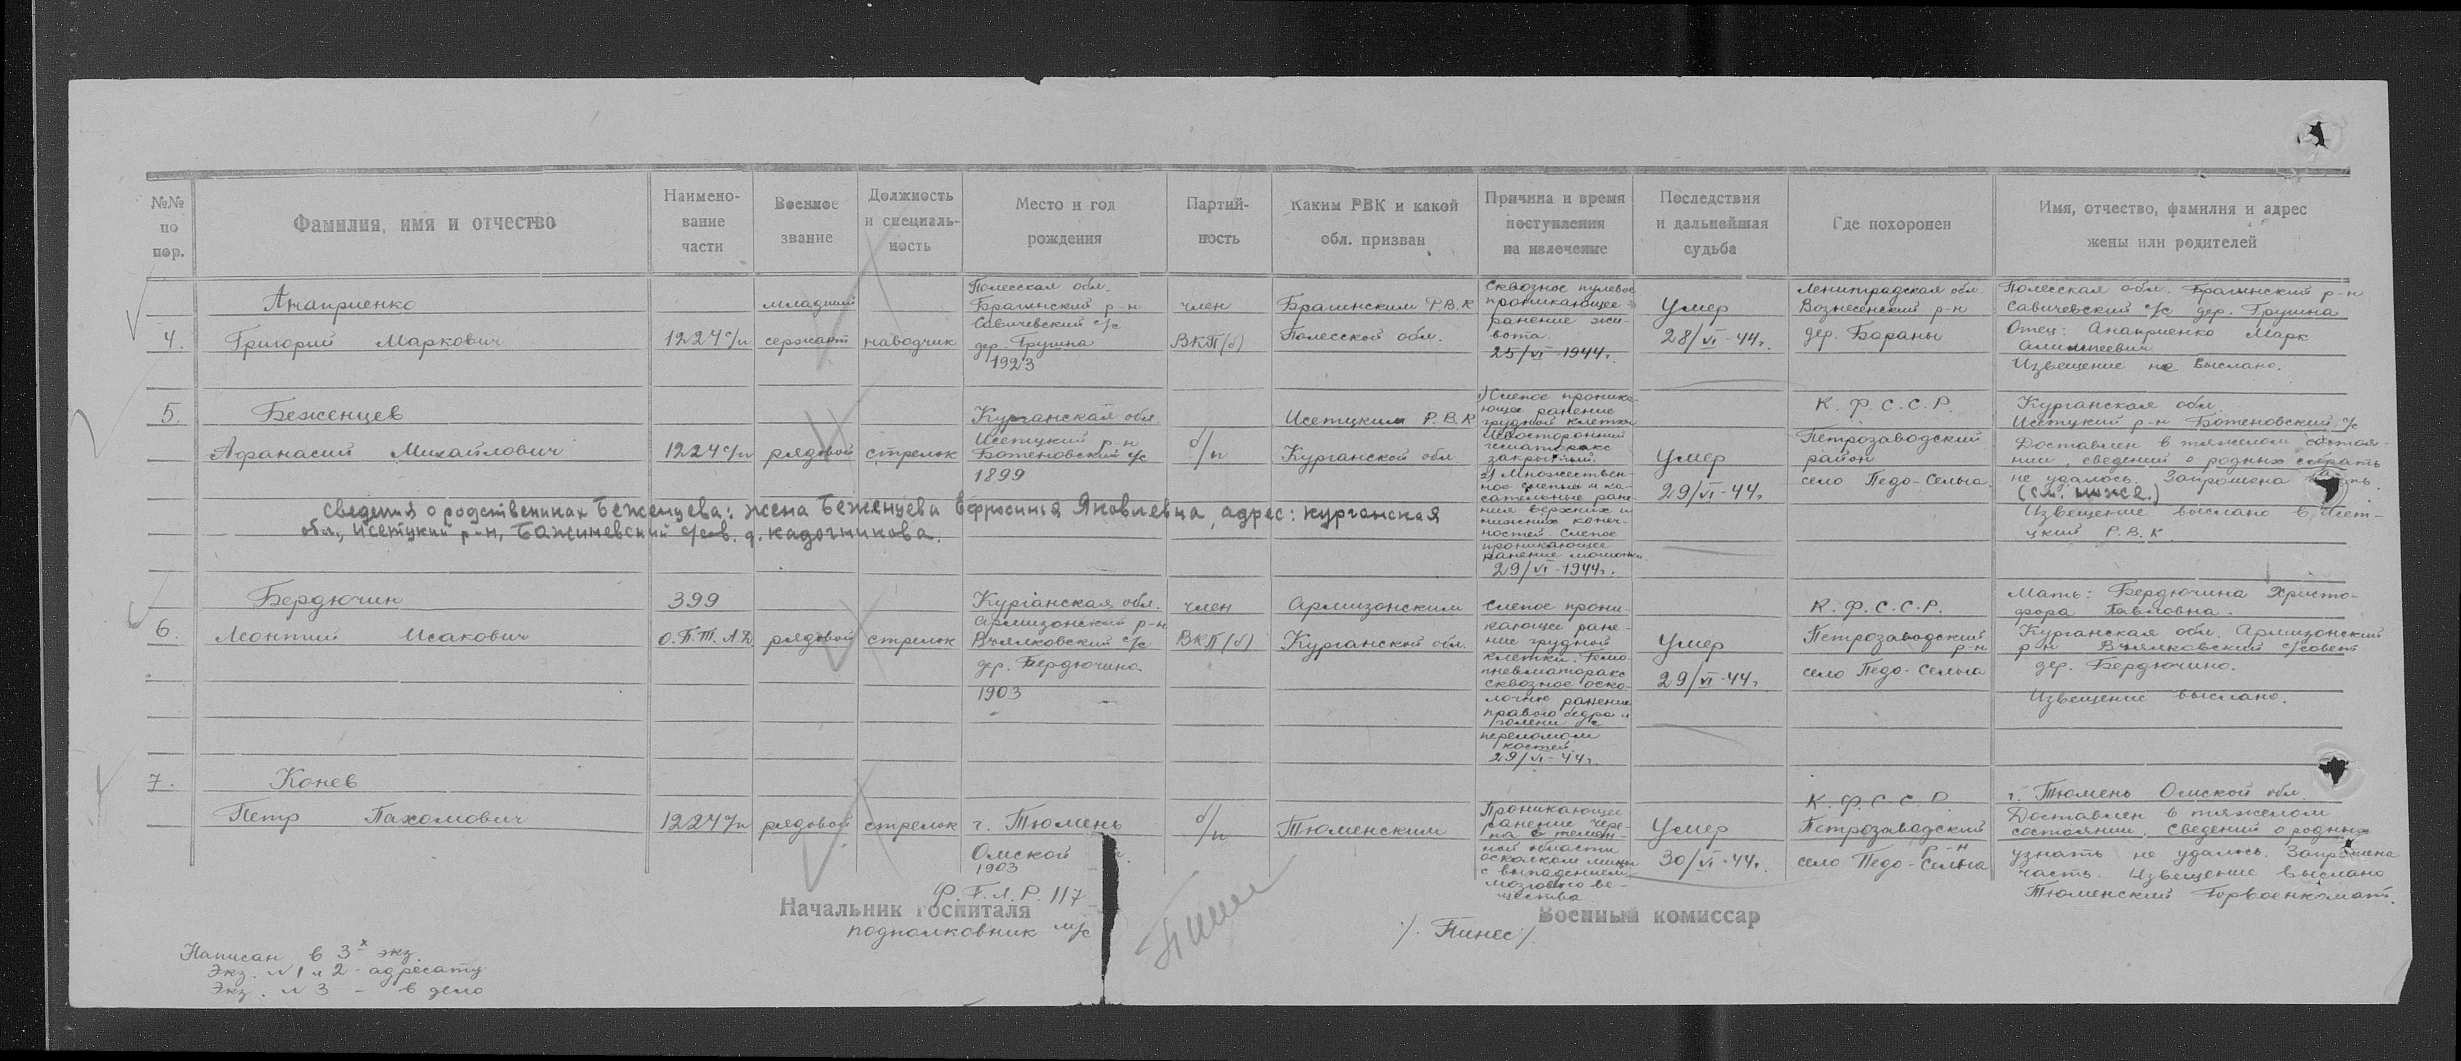 №№ по пор.
Фамилия, имя и отчество
Наимено-
вание
части
Военное
звание
Должность
и специаль-
ность
Место и год
рождения
Партий-
ность
Каким РВК и какой
обл. призван
Причина и время
поступления
на излечение
Последствия
и дальнейшая
судьба
Где похоронен
Имя, отчество, фамилия и адрес
жены или родителей
4.
Анаприенко
Григорий Маркович
1224 с/п
младший
сержант
наводчик
Полесская обл.
Брагинский р-н
Савичевский с/с
дер. Грушна
1923
член
ВКП(б)
Брагинским Р.В.К
Полесской обл.
Сквозное пулевое
проникающее
ранение жи-
вота.
25/VI-1944г.
Умер
28/VI-44г.
Ленинградская обл.
Вознесенский р-н
дер. Бараны
Полесская обл. Брагинский р-н
Савичевский с/с дер. Грушна
Отец: Анаприенко Марк
Извещение не выслано.
5.
Беженцев
Афанасий Михайлович
1224 с/п
рядовой
стрелок
Курганская обл
Исетцкий р-н
Ботеновский с/с
1899
б/п
Исетцким Р.В.К
Курганской обл
1) Слепое проника-
ющее ранение
грудной клетки
Левосторонний
закрытый.
2) Множествен-
ное слепые и ка-
сательные ране-
ния верхних и
нижних конеч-
ностей. Слепое
проникающее
ранение мошонки
29/VI-1944г.
Умер
29/VI-44г.
К.Ф.С.С.Р.
Петрозаводский
район
село Педо-Сельга.
Курганская обл.
Исетцкий р-н Ботеновский с/с
Доставлен в тяжелом состоя-
нии, сведений о родных собрать
не удалось. Запрошена часть.
(см. ниже.)
Извещение выслано в Исет-
цкий Р.В.К
Сведения о родственниках Беженцева: жена Беженцева Ефросинья Яковлевна, адрес: Курганская
обл., Исетцкий р-н, Бажиневский с/сов. д. Кадочникова.
6.
Бердючин
Леонтий Исакович
399
о.П.Т.А.Д.
рядовой
стрелок
Курганская обл.
Армизонский р-н
Вьялковский с/с
дер. Бердючина
1903
член
ВКП(б)
Армизонским
Курганской обл.
Слепое прони-
кающее ране-
ние грудной
клетки. Гемо-
пневматоракс
Сквозное оско-
лочное ранение
правого бедра и
голени с
переломом
костей
29/VI-44г.
Умер
29/VI-44г.
К.Ф.С.С.Р.
Петрозаводский
р-н
село Педо-Сельга
Мать: Бердючина Христо-
фора Павловна.
Курганская обл. Армизонский
р-н Вьялковский с/совет
дер. Бердючино.
Извещение выслано.
7.
Конев
Петр Пахомович
1224 с/п
рядовой
стрелок
г. Тюмень
Омской
1903
б/п
Тюменским
Проникающее
ранение чере-
па в темен-
ной области
осколком мины
с выпадением
мозгового ве-
щества.
Умер
30/VI-44г.
К.Ф.С.С.Р.
Петрозаводский
р-н
село Педо-Сельга
г. Тюмень Омской обл.
Доставлен в тяжелом
состоянии. Сведений о родных
узнать не удалось. Запрошена
часть. Извещение выслано
Тюменский Горвоенкомат.
117
Начальник госпиталя
подполковник м/с
/. Пинес/.
Военный комиссар
Написан в 3х экз.
Экз. №1 и 2 - адресату
Экз. №3 - в дело